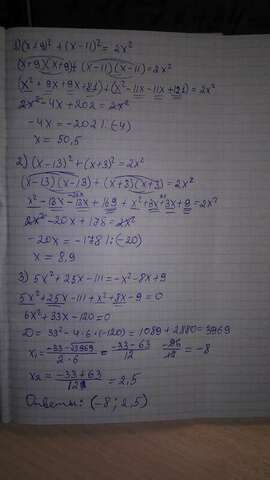 1) (x+9)² + (x-11)² = 2x²
(x+9)(x+9)+(x-11)(x-11)=2x²
(x²+9x+9x+81)+(x²-11x-11x+121)=2x²
2x²-4x+202=2x²
-4x=-202 |:(-4)
x = 50,5
2) (x-13)²+(x+3)²=2x²
(x-13)(x-13)+(x+3)(x+3)=2x²
x²-13x-13x+169+x²+3x+3x+9=2x²
2x²-20x+178=2x²
-20x=-178 |:(-20)
x = 8,9
3) 5x²+25x-111=-x²-8x+9
5x²+25x-111+x²+8x-9=0
6x²+33x-120=0
D=33²-4·6·(-120)=1089+2880=3969
x₁=(-33-√3969)/(2·6)=(-33-63)/12=-96/12=-8
x₂=(-33+63)/12=2,5
Ответы: (-8; 2,5)